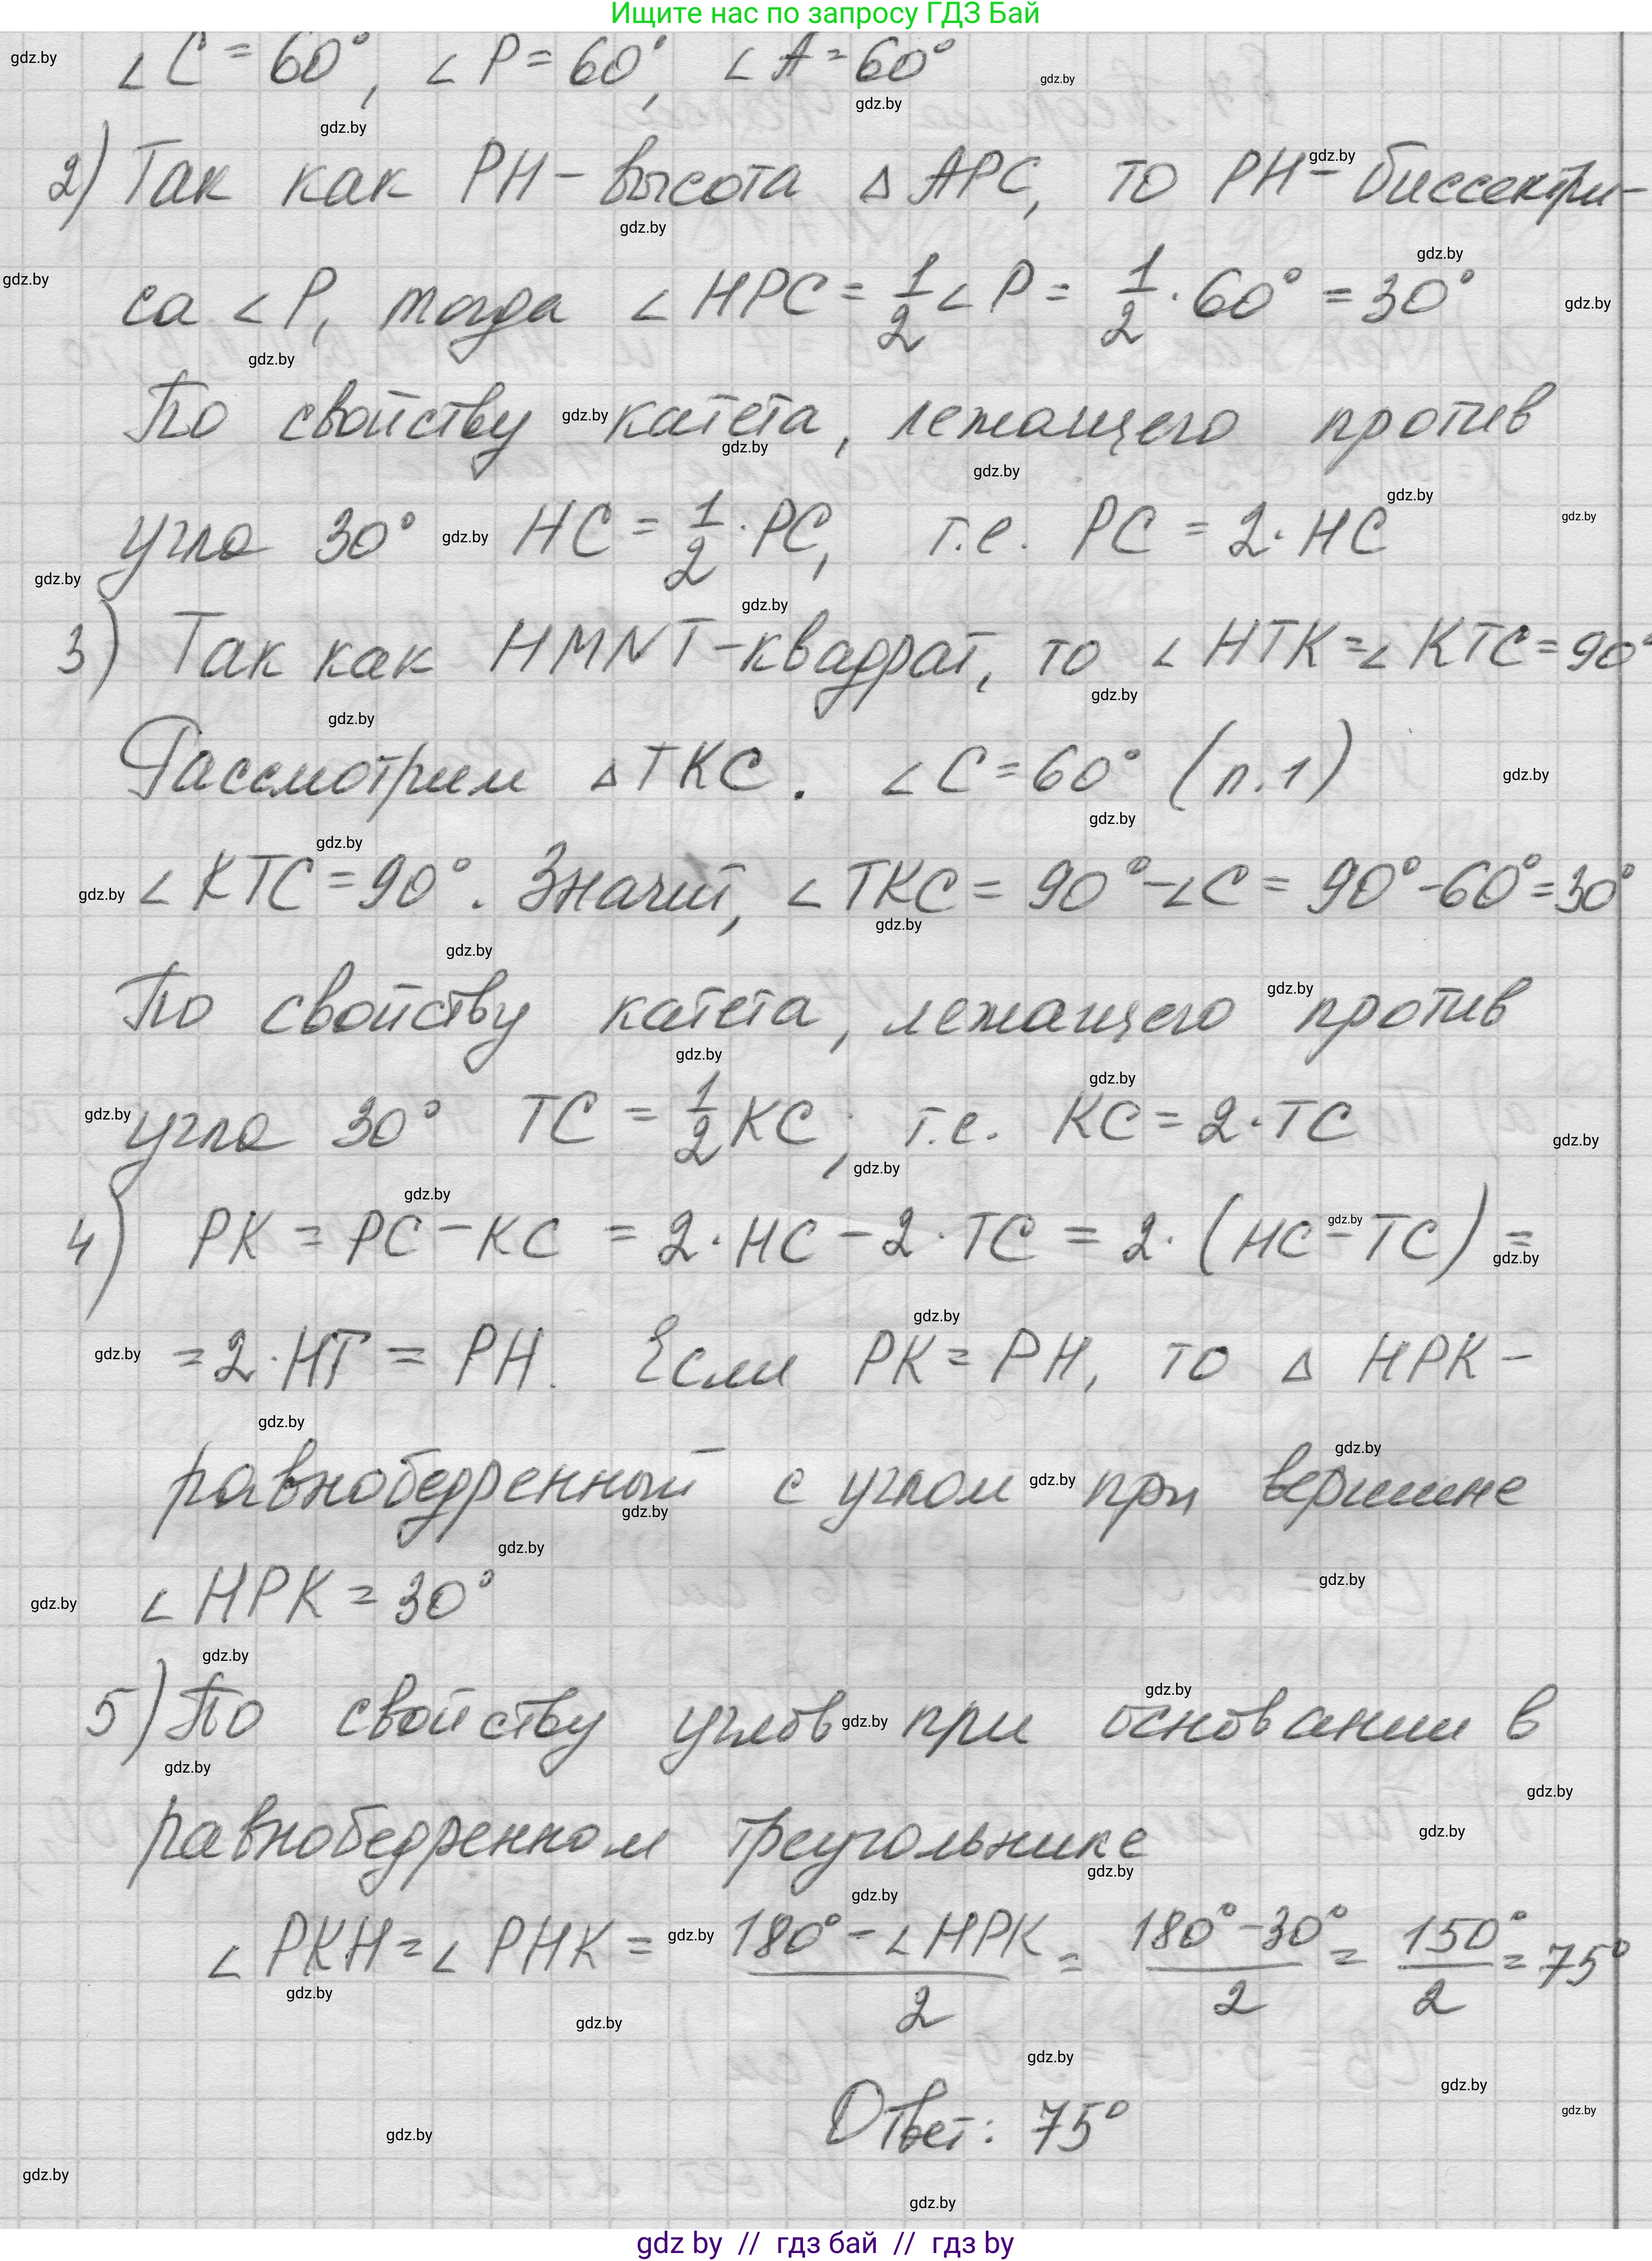 Ищите нас по запросу ГДЗ Бай
∠C = 60°, ∠P = 60°, ∠A = 60°
2) Так как PH – высота △ APC, то PH – биссектри-
са ∠P, тогда ∠HPC = 1/2 ∠P = 1/2 · 60° = 30°
По свойству катета, лежащего против
угла 30° HC = 1/2 · PC, т.е. PC = 2 · HC
3) Так как HMNT – квадрат, то ∠HTK = ∠KTC = 90°
Рассмотрим △TKC. ∠C = 60° (п.1)
∠KTC = 90°. Значит, ∠TKC = 90° – ∠C = 90° – 60° = 30°
По свойству катета, лежащего против
угла 30° TC = 1/2 KC, т.е. KC = 2 · TC
4) PK = PC – KC = 2 · HC – 2 · TC = 2 · (HC – TC) =
= 2 · HT = PH. Если PK = PH, то △ HPK –
равнобедренный с углом при вершине
∠HPK = 30°
5) По свойству углов при основании в
равнобедренном треугольнике
∠PKH = ∠PHK = (180° – ∠HPK)/2 = (180° – 30°)/2 = 150°/2 = 75°
Ответ: 75°
gdz by // гдз бай // гдз by